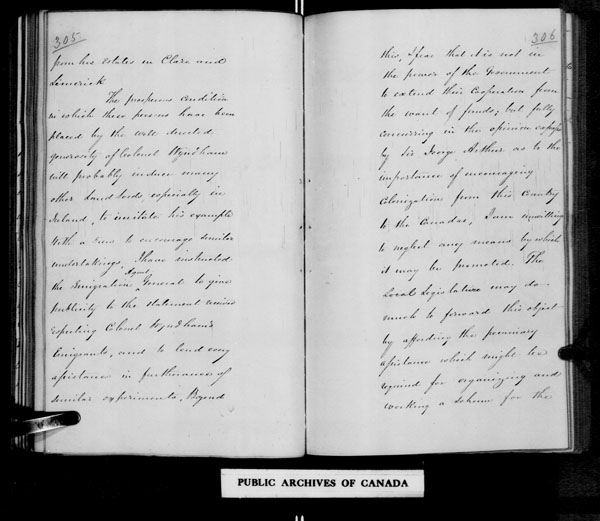 305
from his estates in Clare and
Limerick
The prosperous condition
in which these persons have been
placed by the well devised
generosity of Colonel Wyndham
will probably induce many
other Landlords especially in
Ireland, to imitate his example
With a view to encourage similar
undertakings, I have instructed
the Emigration Agent General to give
publicity to the statement received
respecting Colonel Wyndham's
Emigrants, and to lend every
assistance in furtherance of
similar experiments. Beyond
306
this, I fear that it is not in
the power of the Government
to extend their Cooperation from
the want of funds; but fully
concurring in the opinion expressed
by Sir George Arthur as to the
importance of encouraging
Colonization from this Country
to the Canadas, I am unwilling
to neglect any means by which
it may be promoted. The
Local Legislature may do
much to forward this object
by affording the pecuniary
assistance which might be
required for organizing and
working a scheme for the
PUBLIC ARCHIVES OF CANADA